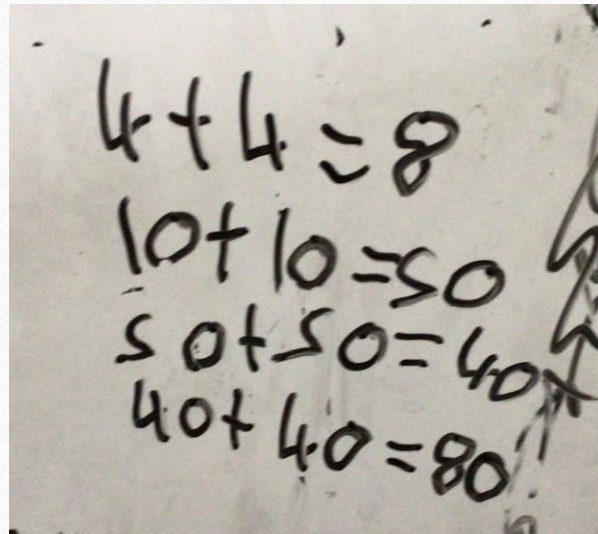 4+4=8
10+10=50
50+50=40
40+40=80